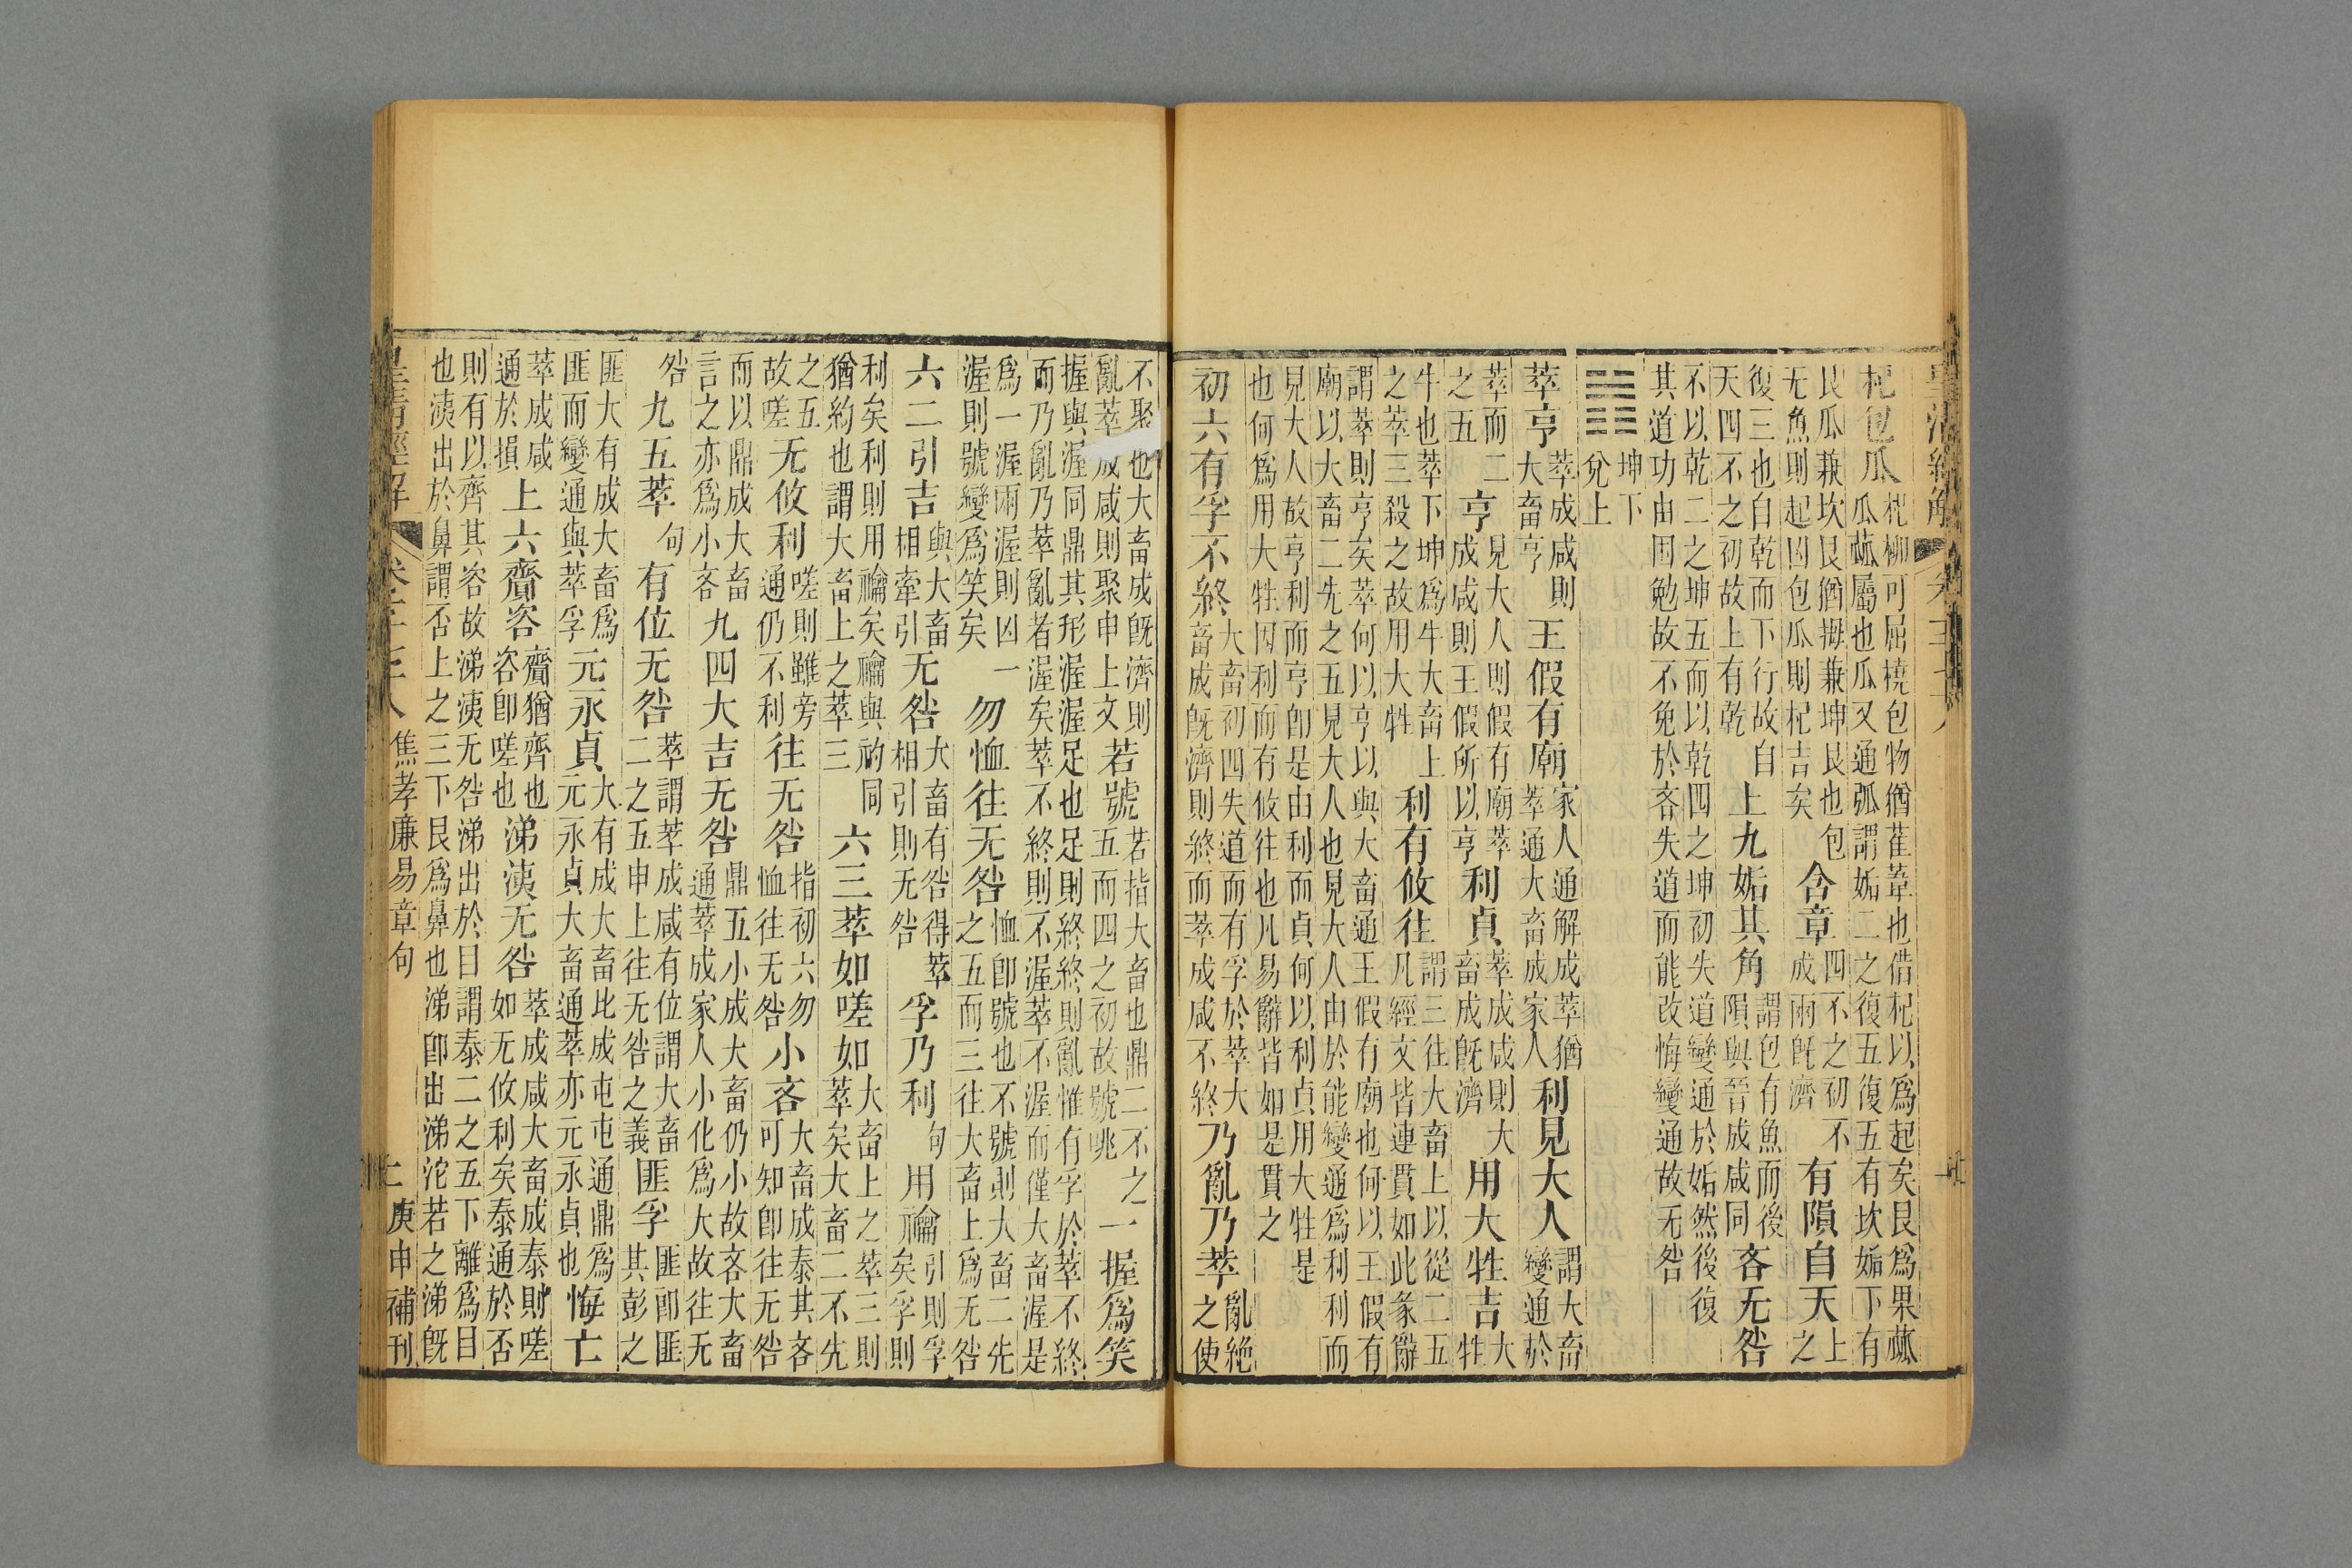 杞包瓜杞柳可屈橈包物猶萑葦也借杞以爲起矣艮爲果蓏
瓜蓏屬也瓜又通弧謂姤二之復五復五有坎姤下有
艮瓜兼坎艮猶拇兼坤艮也包
无魚則起凶包瓜則杞吉矣含章四不之初不
成兩旣濟有隕自天上
之
復三也自乾而下行故自
天四不之初故上有乾上九姤其角謂包有魚而後
隕與晉成咸同吝无咎
不以乾二之坤五而以乾四之坤初失道變通於姤然後復
其道功由困勉故不免於吝失道而能改悔變通故无咎
坤下
兌上
萃亨萃成咸則
大畜亨王假有廟家人通解成萃猶
萃通大畜成家人利見大人謂大畜
變通於
萃而二
之五亨見大人則假有廟萃
成咸則王假所以亨利貞萃成咸則大
畜成旣濟用大牲吉大
牲
牛也萃下坤爲牛大畜上
之萃三殺之故用大牲利有攸往謂三往大畜上以從二五
凡經文皆連貫如此彖辭
謂萃則亨矣萃何以亨以與大畜通王假有廟也何以王假有
廟以大畜二先之五見大人也見大人由於能變通爲利利而
見大人故亨利而亨卽是由利而貞何以利貞用大牲是
也何爲用大牲因利而有攸往也凡易辭皆如是貫之
初六有孚不終大畜初四失道而有孚於萃大
畜成旣濟則終而萃成咸不終乃亂乃萃亂絕
之使
不聚也大畜成旣濟則
亂萃成咸則聚申上文若號若指大畜也鼎二不之
五而四之初故號咷一握爲笑
握與渥同鼎其形渥渥足也足則終終則亂惟有孚於萃不終
而乃亂乃萃亂者渥矣萃不終則不渥萃不渥而僅大畜渥是
爲一渥兩渥則凶一
渥則號變爲笑矣勿恤往无咎恤卽號也不號則大畜二先
之五而三往大畜上爲无咎
六二引吉與大畜
相牽引无咎大畜有咎得萃
相引則无咎孚乃利句用禴引則孚
矣孚則
利矣利則用禴矣禴與礿同
猶約也謂大畜上之萃三六三萃如嗟如大畜上之萃三則
萃矣大畜二不先
之五
故嗟无攸利嗟則雖旁
通仍不利往无咎指初六勿
恤往无咎小吝大畜成泰其吝
可知卽往无咎
而以鼎成大畜
言之亦爲小吝九四大吉无咎鼎五小成大畜仍小故吝大畜
通萃成家人小化爲大故往无
咎九五萃句有位无咎萃謂萃成咸有位謂大畜
二之五申上往无咎之義匪孚匪卽匪
其彭之
匪大有成大畜爲
匪而變通與萃孚元永貞大有成大畜比成屯屯通鼎爲
元永貞大畜通萃亦元永貞也悔亡
萃成咸
通於損上六齎咨齎猶齊也
咨卽嗟也涕洟无咎萃成咸大畜成泰則嗟
如无攸利矣泰通於否
則有以齊其咨故涕洟无咎涕出於目謂泰二之五下離爲目
也洟出於鼻謂否上之三下艮爲鼻也涕卽出涕沱若之涕旣
焦孝廉易章句
庚申補刊